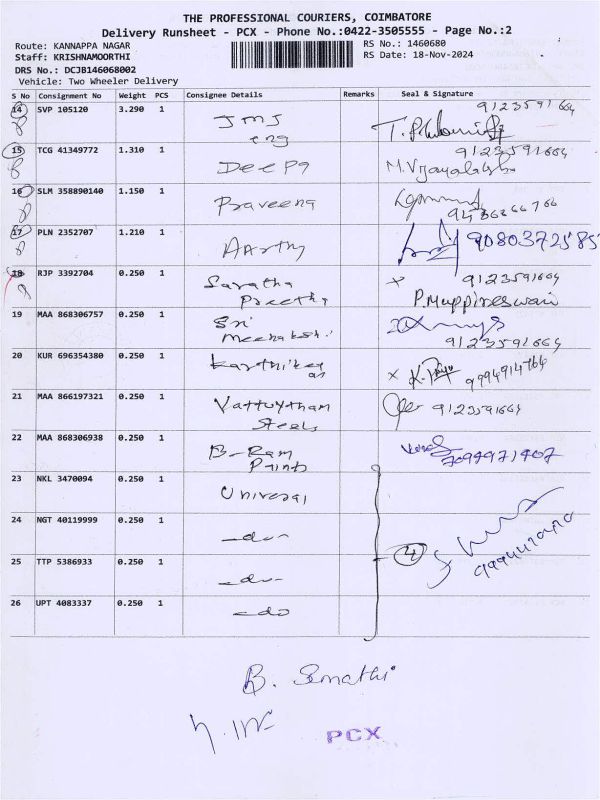 THE PROFESSIONAL COURIERS, COIMBATORE
Delivery Runsheet - PCX - Phone No.:0422-3505555 - Page No.:2
Route: KANNAPPA NAGAR
RS No.: 1460680
Staff: KRISHNAMOORTHI
RS Date: 18-Nov-2024
DRS No.: DCJB146068002
Vehicle: Two Wheeler Delivery
S No Consignment No Weight PCS Consignee Details Remarks Seal & Signature
14 SVP 105120 3.290 1 JMJ 9123591664
eng
15 TCG 41349772 1.310 1 Deepa 9123591664
M.Vijayalakshmi
16 SLM 358890140 1.150 1 Praveena
17 PLN 2352707 1.210 1 Aarthy 9080372585
18 RJP 3392704 0.250 1 Saratha x 9123591664
Preetha P.Muppireswari
19 MAA 868306757 0.250 1 Sri
Meenakshi 9123591664
20 KUR 696354380 0.250 1 Karthikey
an x 9994914764
21 MAA 866197321 0.250 1 9123591664
Steels
22 MAA 868306938 0.250 1 B-Ram
Paints 7094971407
23 NKL 3470094 0.250 1 Universal
24 NGT 40119999 0.250 1 -do-
4
25 TTP 5386933 0.250 1 -do-
26 UPT 4083337 0.250 1 -do
B. Sumathi
PCX